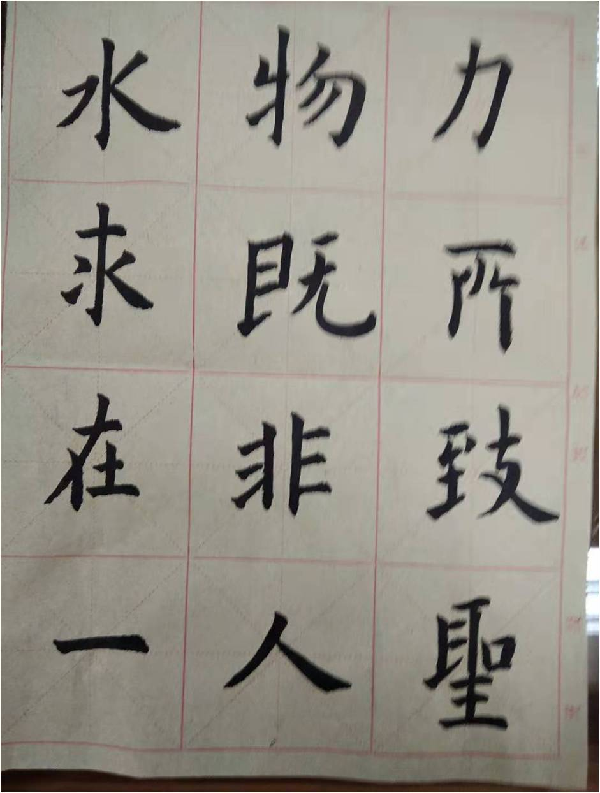 水求在一
物既非人
力所致聖